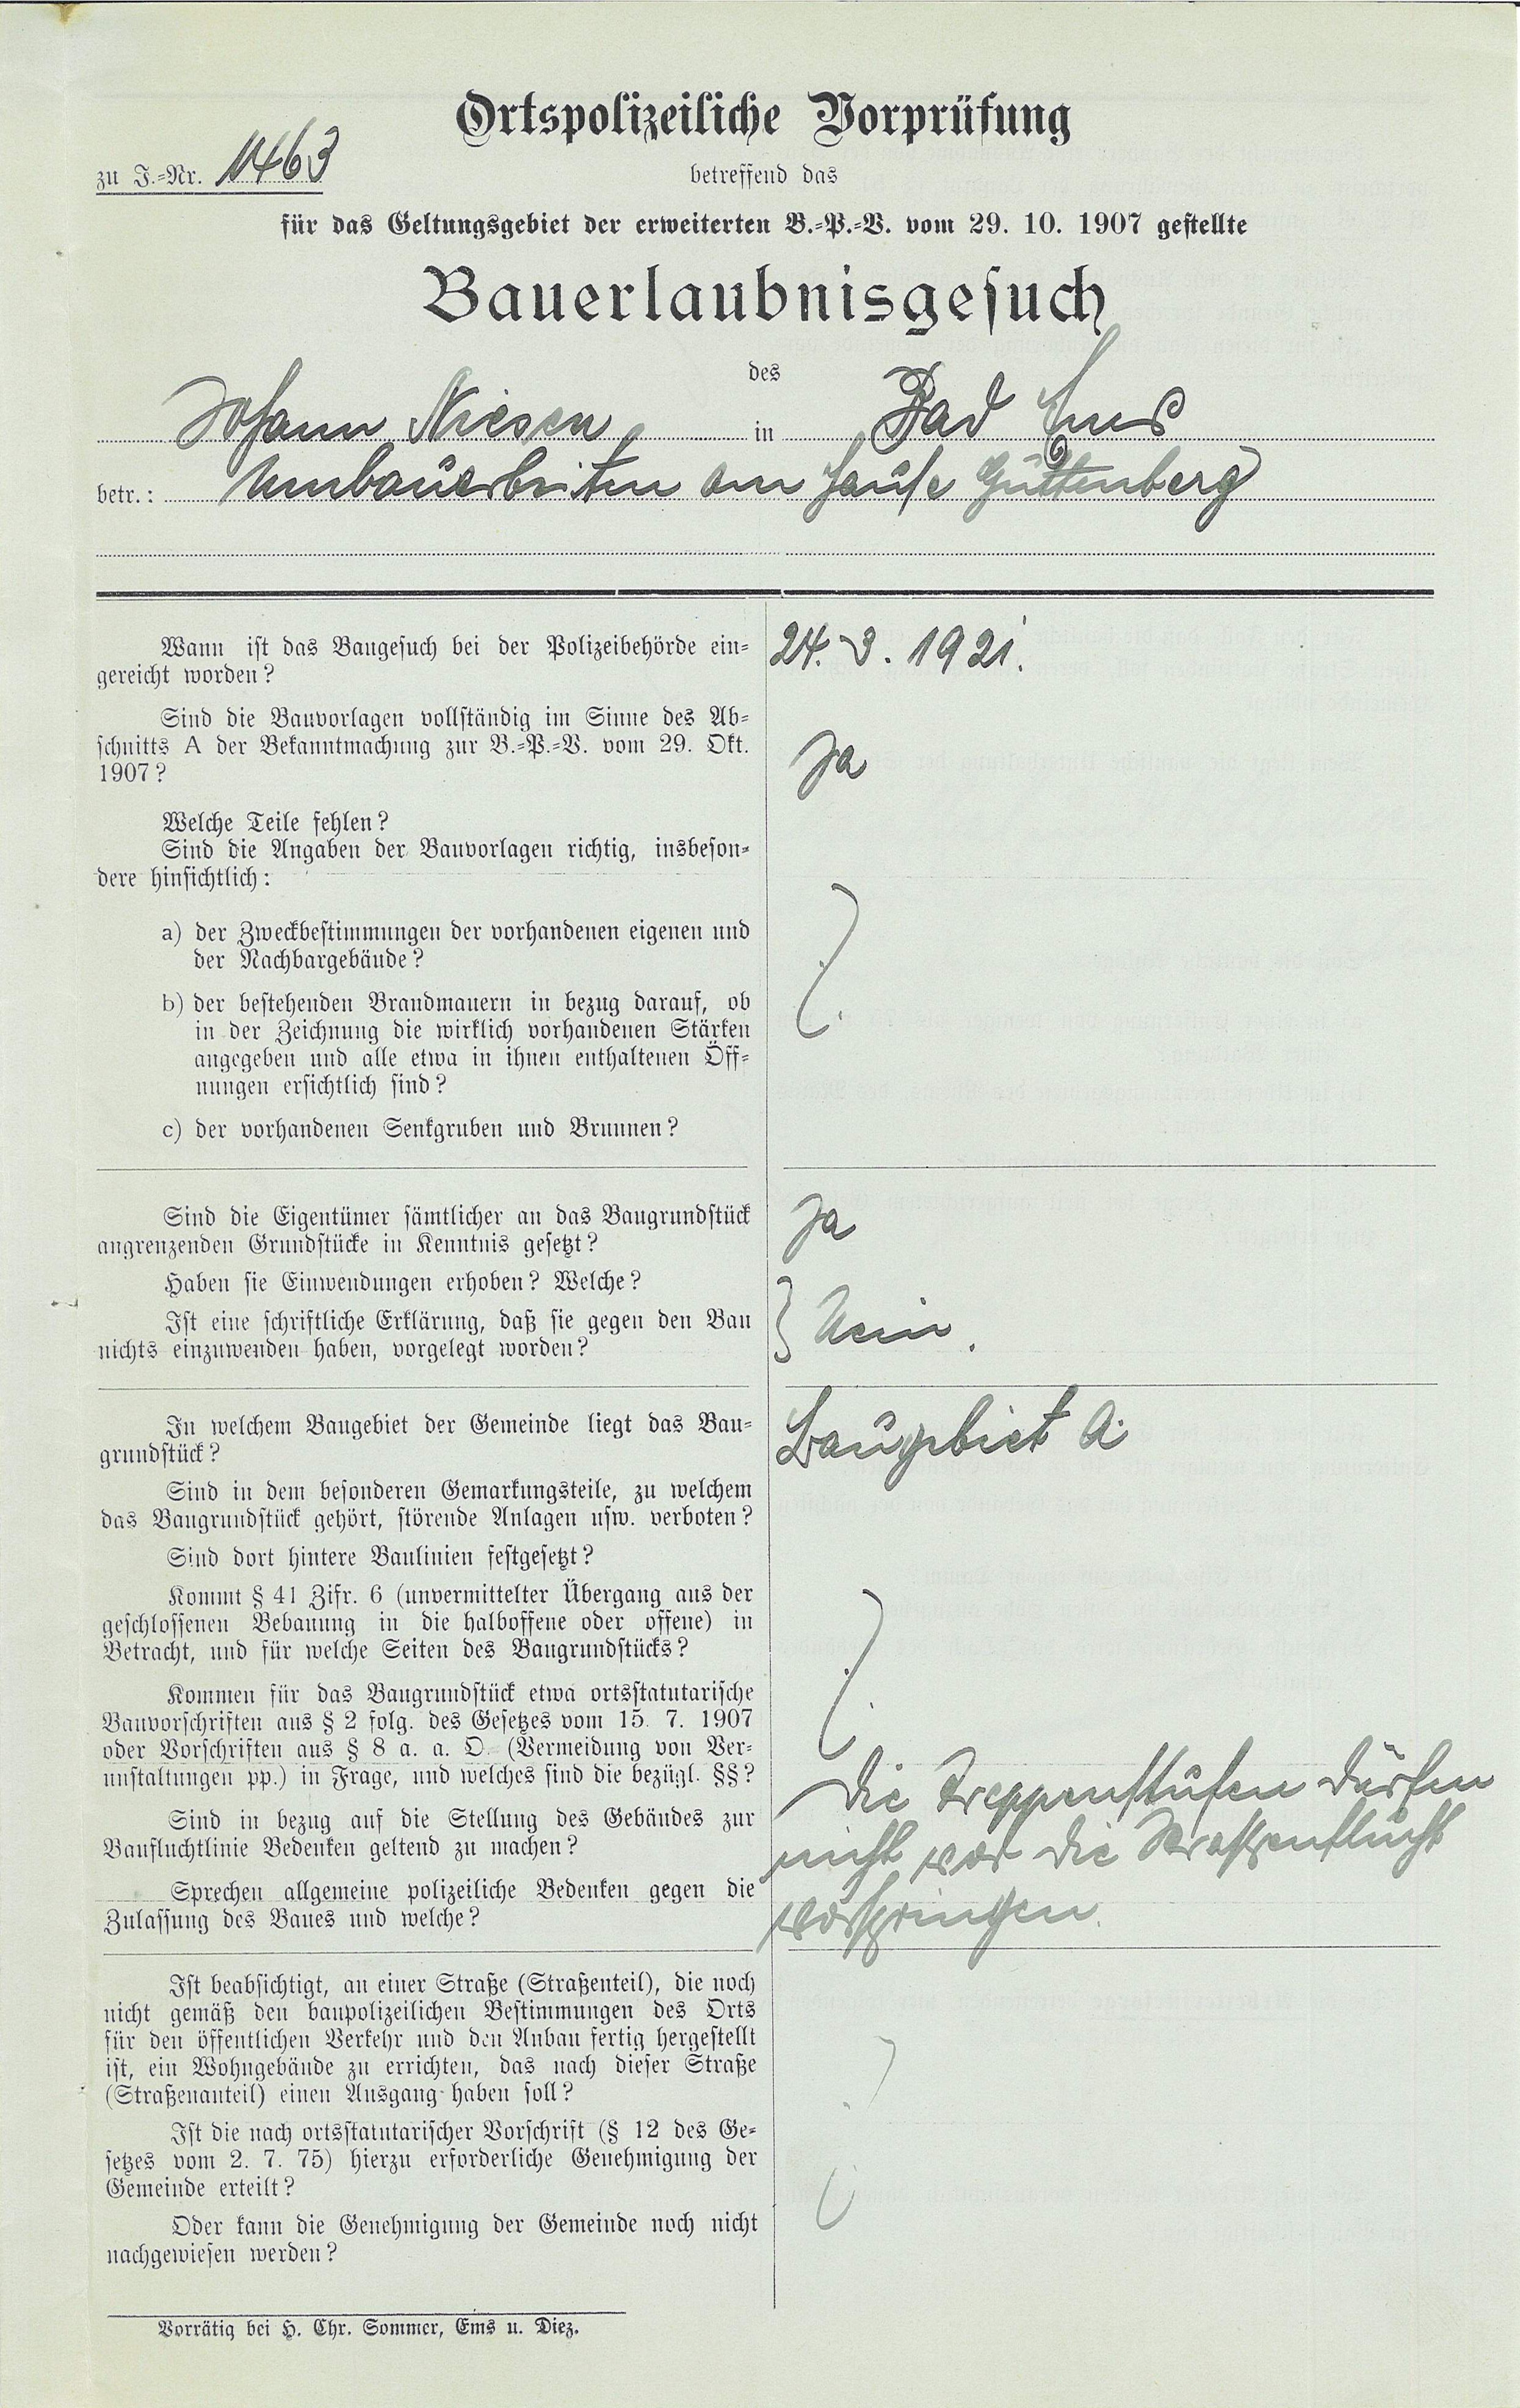 Ortspolizeiliche Vorprüfung
zu J.-Nr. 1463
betreffend das
für das Geltungsgebiet der erweiterten B.-P.-V. vom 29. 10. 1907 gestellte
Bauerlaubnisgesuch
des
Johann Niesen in Bad Ems
betr.: Umbauarbeiten am Hause Guttenberg
Wann ist das Baugesuch bei der Polizeibehörde ein-
gereicht worden?
24. 3. 1921.
Sind die Bauvorlagen vollständig im Sinne des Ab-
schnitts A der Bekanntmachung zur B.-P.-V. vom 29. Okt.
1907?
Ja
Welche Teile fehlen?
Sind die Angaben der Bauvorlagen richtig, insbeson-
dere hinsichtlich:
a) der Zweckbestimmungen der vorhandenen eigenen und
der Nachbargebäude?
b) der bestehenden Brandmauern in bezug darauf, ob
in der Zeichnung die wirklich vorhandenen Stärken
angegeben und alle etwa in ihnen enthaltenen Öff-
nungen ersichtlich sind?
c) der vorhandenen Senkgruben und Brunnen?
Sind die Eigentümer sämtlicher an das Baugrundstück
angrenzenden Grundstücke in Kenntnis gesetzt?
Ja
Haben sie Einwendungen erhoben? Welche?
Ist eine schriftliche Erklärung, daß sie gegen den Bau
nichts einzuwenden haben, vorgelegt worden?
} Nein.
In welchem Baugebiet der Gemeinde liegt das Bau-
grundstück?
Baugebiet A.
Sind in dem besonderen Gemarkungsteile, zu welchem
das Baugrundstück gehört, störende Anlagen usw. verboten?
Sind dort hintere Baulinien festgesetzt?
Kommt § 41 Zifr. 6 (unvermittelter Übergang aus der
geschlossenen Bebauung in die halboffene oder offene) in
Betracht, und für welche Seiten des Baugrundstücks?
Kommen für das Baugrundstück etwa ortsstatutarische
Bauvorschriften aus § 2 folg. des Gesetzes vom 15. 7. 1907
oder Vorschriften aus § 8 a. a. O. (Vermeidung von Ver-
unstaltungen pp.) in Frage, und welches sind die bezügl. §§?
Sind in bezug auf die Stellung des Gebäudes zur
Baufluchtlinie Bedenken geltend zu machen?
Sprechen allgemeine polizeiliche Bedenken gegen die
Zulassung des Baues und welche?
Die Treppenstufen dürfen
nicht vor die Straßenflucht
vorspringen.
Ist beabsichtigt, an einer Straße (Straßenteil), die noch
nicht gemäß den baupolizeilichen Bestimmungen des Orts
für den öffentlichen Verkehr und den Anbau fertig hergestellt
ist, ein Wohngebäude zu errichten, das nach dieser Straße
(Straßenanteil) einen Ausgang haben soll?
Ist die nach ortsstatutarischer Vorschrift (§ 12 des Ge-
setzes vom 2. 7. 75) hierzu erforderliche Genehmigung der
Gemeinde erteilt?
Oder kann die Genehmigung der Gemeinde noch nicht
nachgewiesen werden?
Vorrätig bei H. Chr. Sommer, Ems u. Diez.